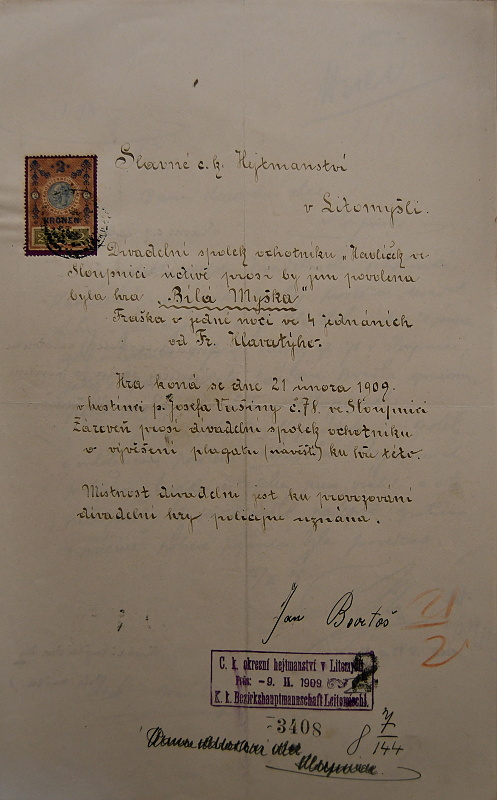 Slavné c. k. Hejtmanství
v Litomyšli.
2
KRONEN
Divadelní spolek ochotníku „Havlíček ve
Sloupnici uctivě prosí by jim povolena
byla hra „Bílá Myška"
Fraška v jedné noci ve 4 jednáních
od Fr. Hlavatýho.
Hra koná se dne 21 února 1909.
v hostinci p. Josefa Vušiny č. 78. ve Sloupnici
Zároveň prosí divadelní spolek ochotníku
o vývěšení plagatu (návěští) ku hře této.
Místnost divadelní jest ku provozování
divadelní hry policejne uznána.
Jan Bartoš
21/2
C. k. okresní hejtmanství v Litomyšli
Präs: -9. II. 1909
K. k. Bezirkshauptmannschaft Leitomischl.
2
3408
8 7/144